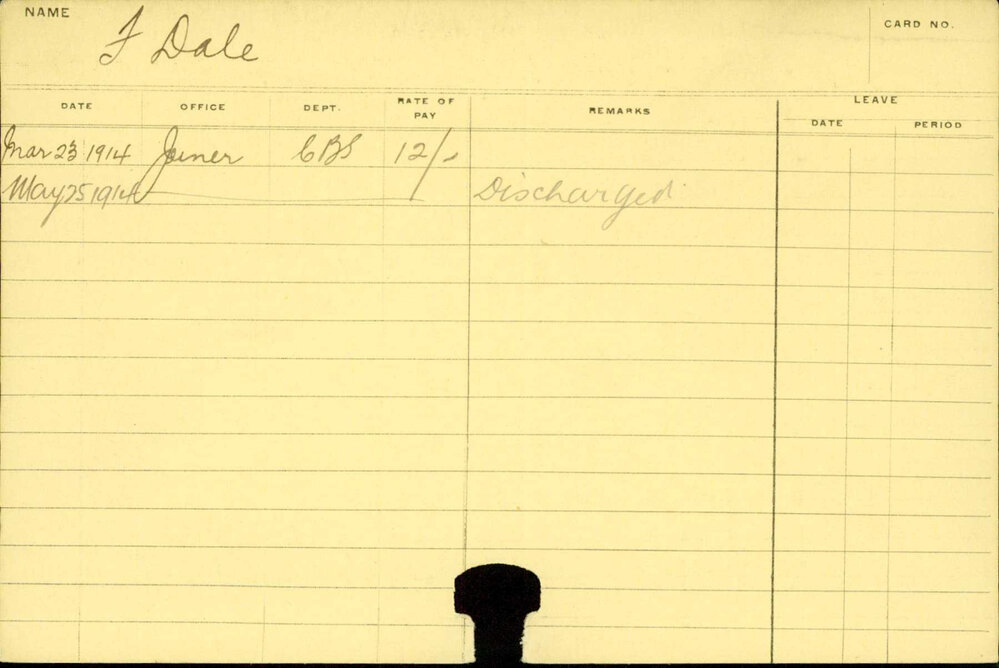 NAME F Dale CARD NO.
DATE OFFICE DEPT. RATE OF PAY REMARKS LEAVE
DATE PERIOD
Mar 23 1914 Joiner CBS 12/-
May 25 1914 Discharged